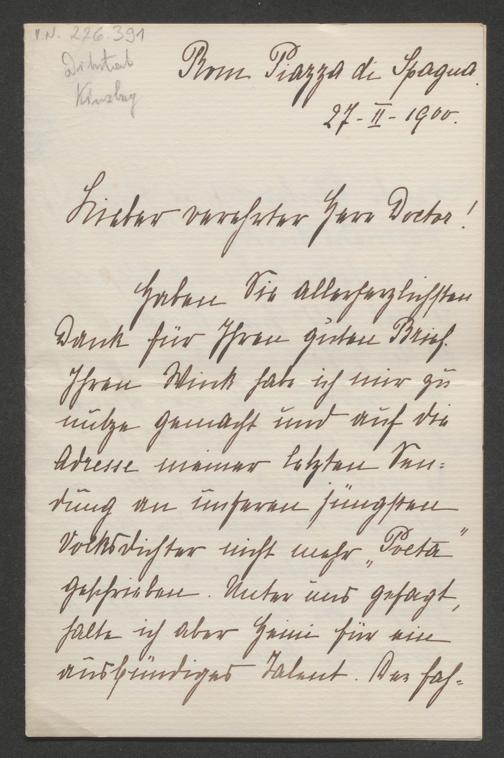 I.N. 226.391
Rom Piazza di Spagna.
27-II-1900.
Lieber verehrter Herr Doctor!
Haben Sie allerherzlichsten
Dank für Ihren guten Brief.
Ihren Wink habe ich mir zu
nütze gemacht und auf die
Adresse meiner letzten Sen-
dung an unseren jüngsten
Volksdichter nicht mehr „Poeta"
geschrieben. Unter uns gesagt,
halte ich aber Heini für ein
ausbündiges Talent. Der fah-